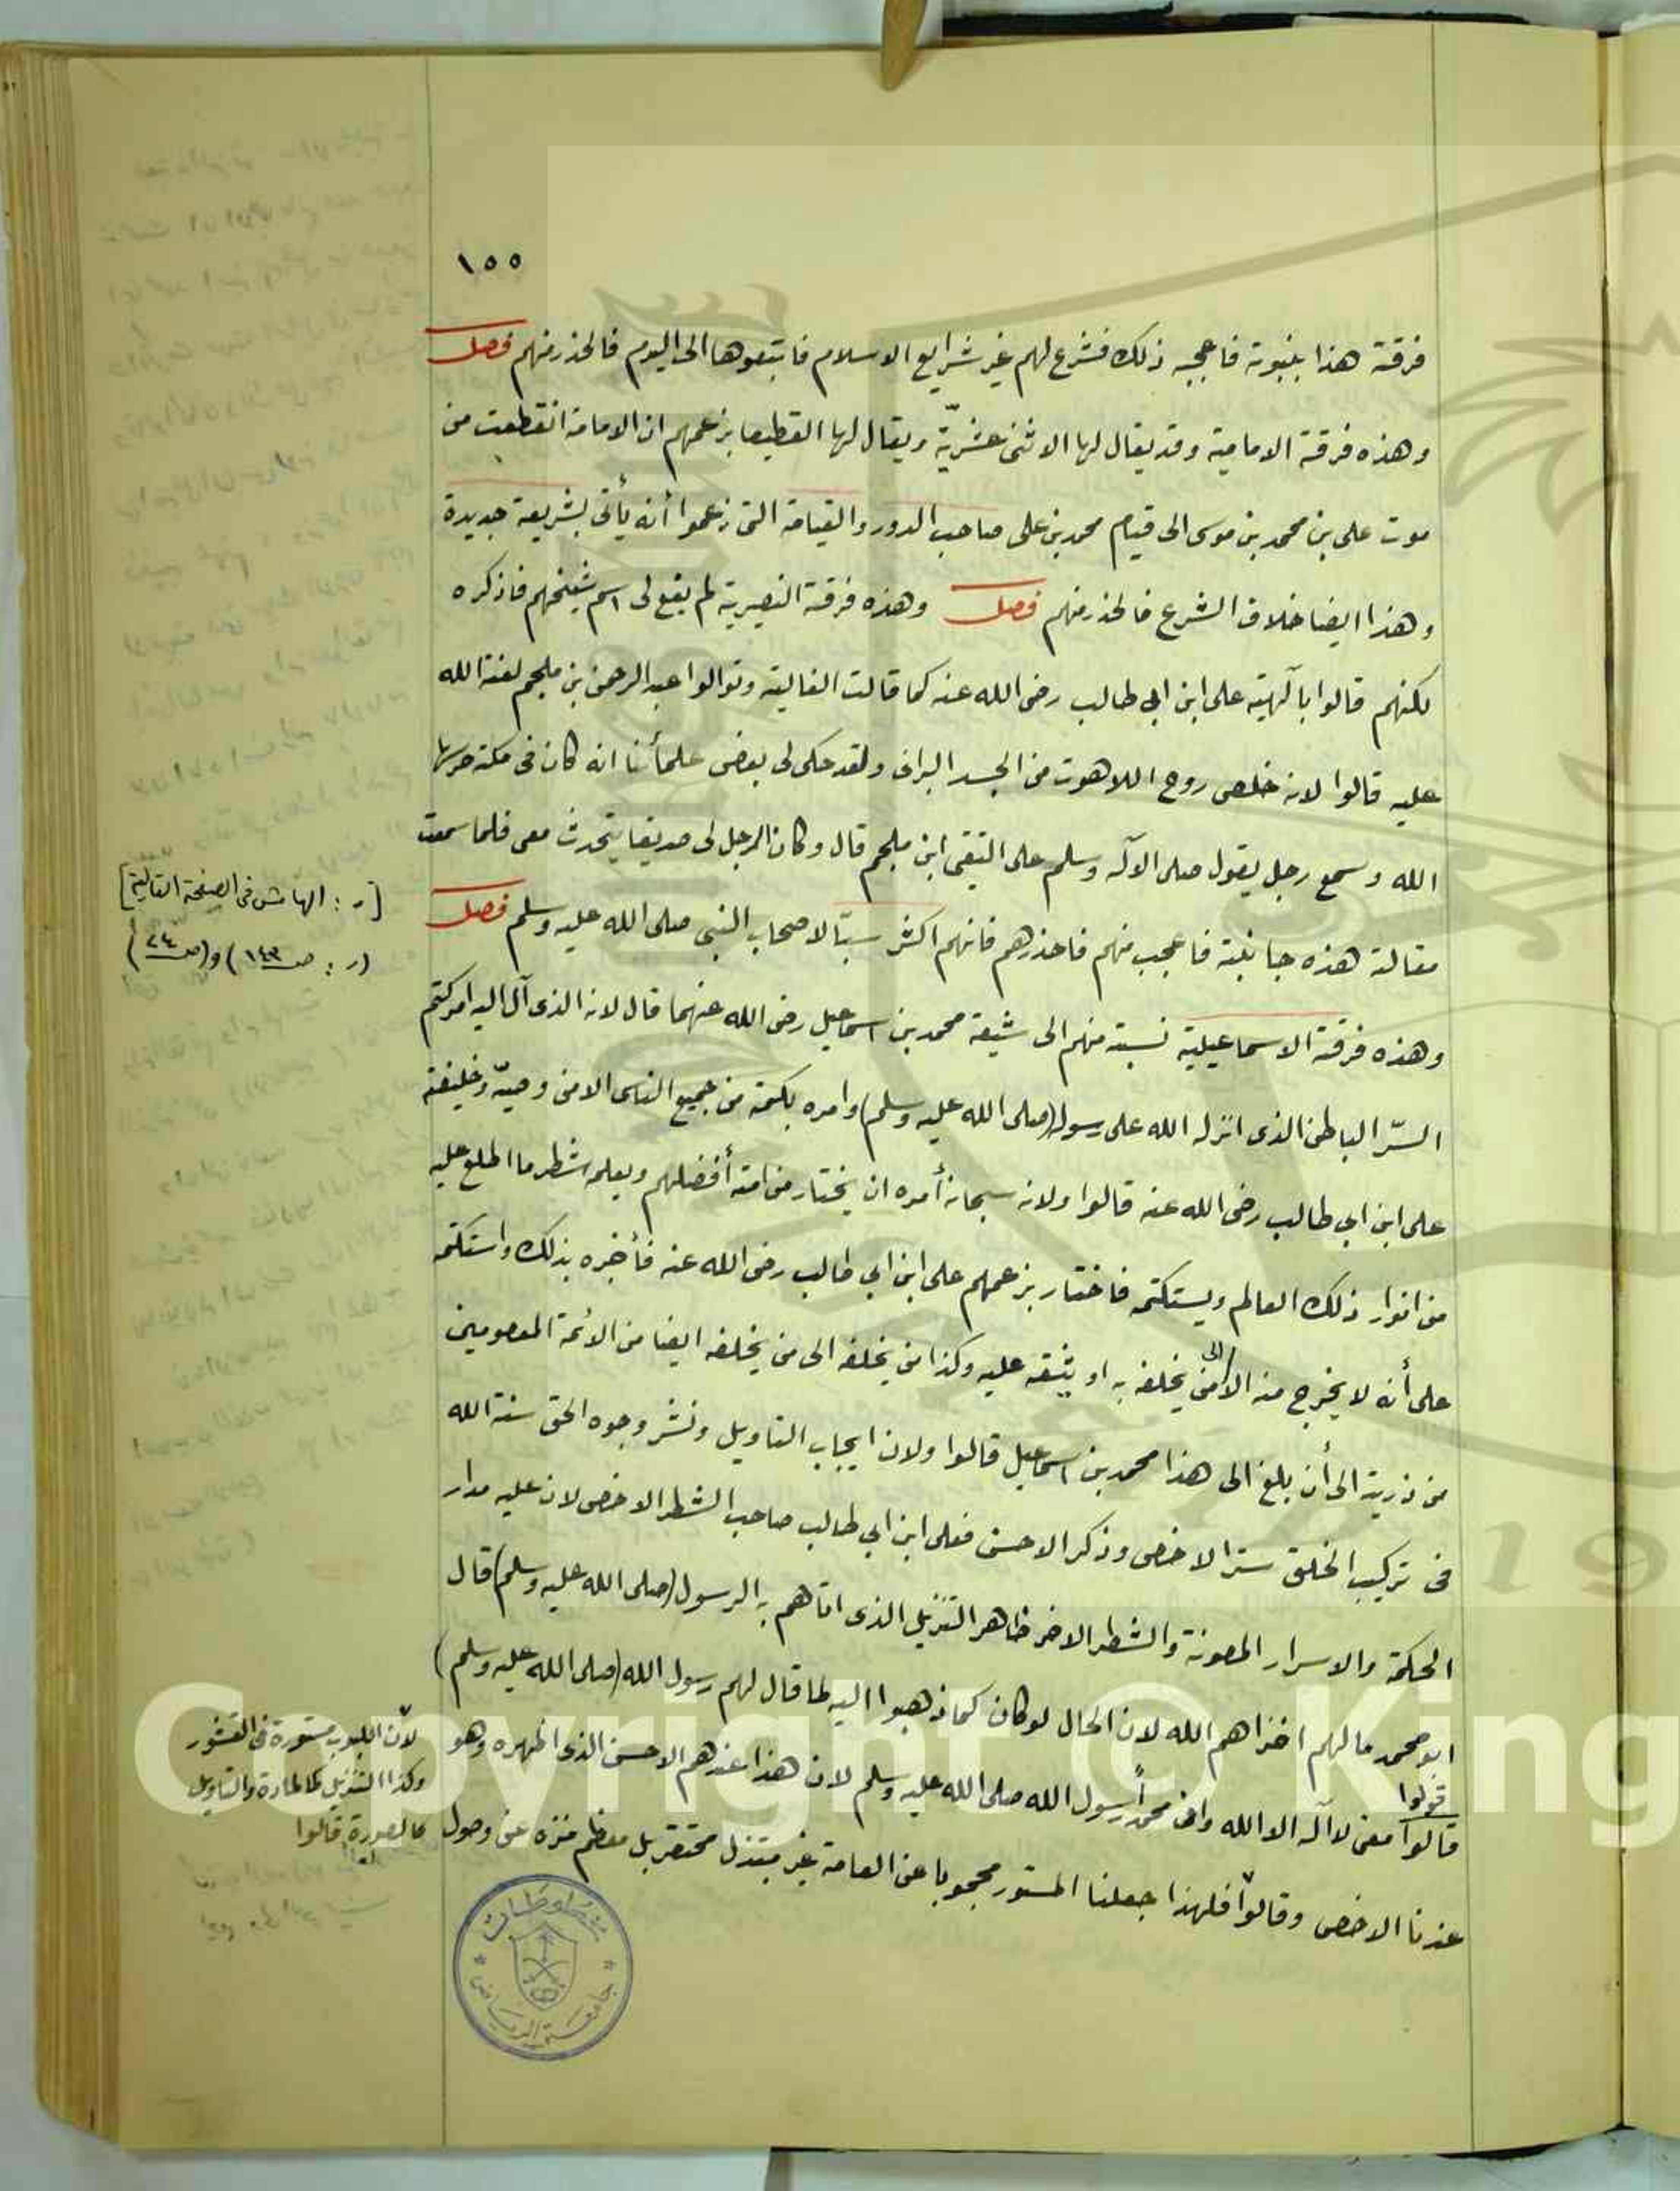 ١٥٥
فرقة هذا بنبوته فاعجبه ذلك فشرع لهم غير شرايع الاسلام فاتبعوها الى اليوم فالحذر منهم فصل
وهذه فرقة الامامية وقد يقال لها الاثنى عشريّة ويقال لها القطيعا بزعمهم ان الامامة انقطعت من
موت على بن محمد بن موسى الى قيام محمد بن على صاحب الدور والقيامة التى زعموا أنه يأتى بشريعة جديدة
وهذا ايضا خلاف الشرع فالحذر منهم فصل وهذه فرقة النصيرية لم يقع لى اسم شيخهم فاذكره
لكنهم قالوا بآلهية على ابن ابي طالب رضى الله عنه كما قالت الغالية وتوالوا عبد الرحمن بن ملجم لعنة الله
عليه قالوا لانه خلص روح اللاهوت من الجسد البرانى ولقد حكى لى بعض علمائنا انه كان فى مكة حرسها
الله وسمع رجل يقول صلى الآله وسلم على التقى ابن ملجم قال وكان الرجل لى صديقا يتحدث معى فلما سمعت
مقالته هذه جانبته فاعجب منهم فاحذرهم فانهم اكثر سبّا لاصحاب النبى صلى الله عليه وسلم فصل
وهذه فرقة الاسماعيلية نسبة منهم الى شيعة محمد بن اسماعيل رضى الله عنهما قال لانه الذى آل اليه امر كتم
السرّ الباطن الذى انزله الله على رسول (صلى الله عليه وسلم) وامره بكتمه من جميع الناس الا من وصيّه وخليفته
على ابن ابي طالب رضى الله عنه قالوا ولانه سبحانه أمره ان يختار من امته أفضلهم ويعلمه شطر ما اطلع عليه
من انوار ذلك العالم ويستكتمه فاختار بزعمهم على ابن ابي طالب رضى الله عنه فأخبره بذلك واستكتمه
على أنه لا يخرج منه الا الى من يخلفه به او يثقه عليه وكذا من يخلفه الى من يخلفه ايضا من الائمة المعصومين
من ذريته الى أن بلغ الى هذا محمد بن اسماعيل قالوا ولان ايجاب التاويل ونشر وجوه الحق سنة الله
فى تركيب الخلق ستر الاخص وذكر الاحسن فعلى ابن ابي طالب صاحب الشطر الاخص لان عليه مدار
الحكمة والاسرار المصونة والشطر الاخر ظاهر التنزيل الذى اتاهم به الرسول (صلى الله عليه وسلم) قال
ابو محمد مالهم اخزاهم الله لان الحال لو كان كما ذهبوا اليه لما قال لهم رسول الله (صلى الله عليه وسلم)
قولوا
قالوا معنى لا آله الا الله وان محمدا رسول الله صلى الله عليه وسلم لان هذا عندهم الاحسن الذى اظهره وهو
عندنا الاخص وقالوا فلهذا جعلنا المستور محجوبا عن العامة غير مبتذل محتقر بل معظم منزه عن وصول
[ر: الهامش فى الصفحة التالية]
(ر: ص ١٤٣) و(ص ٢٤)
لان اللبوب مستورة فى القشور
وكذا التنزيل كالمادة والتاويل
كالصورة قالوا
جامعة الرياض
Copyright © King
19